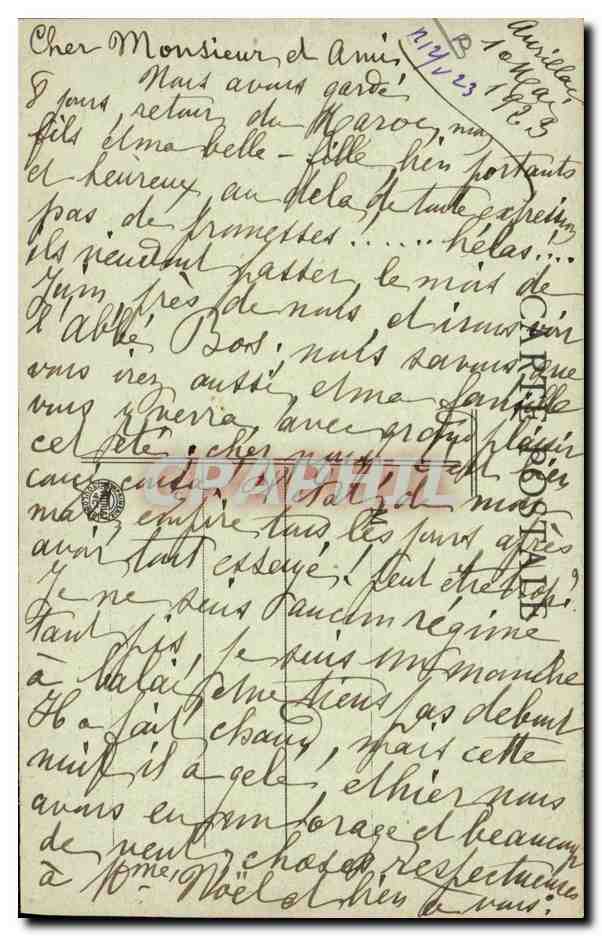 Aurillac
10 Mai
1923
R 12/V 23
Cher Monsieur et Ami,
Nous avons gardé
8 jours, retour du Maroc, mon
fils et ma belle-fille, bien portants
et heureux au delà de toute expression
pas de promesses!..... hélas!...
ils viendront passer le mois de
Juin près de nous, et irons voir
l'Abbé Bos. nous savons que
vous irez aussi, et ma famille
vous y verra avec grand plaisir
cet été. cher nous c'est bien
l'état de mon
mari empire tous les jours après
avoir tout essayé! peut être trop?
Je ne suis aucun régime
tant pis, je suis un manche
à balai, et ne tiens pas debout
Il a fait chaud, mais cette
nuit il a gelé, et hier nous
avons eu un orage et beaucoup
de vent, choses respectueuses
à Mme Noël et bien à vous.
CARTE POSTALE
CPAPHIL